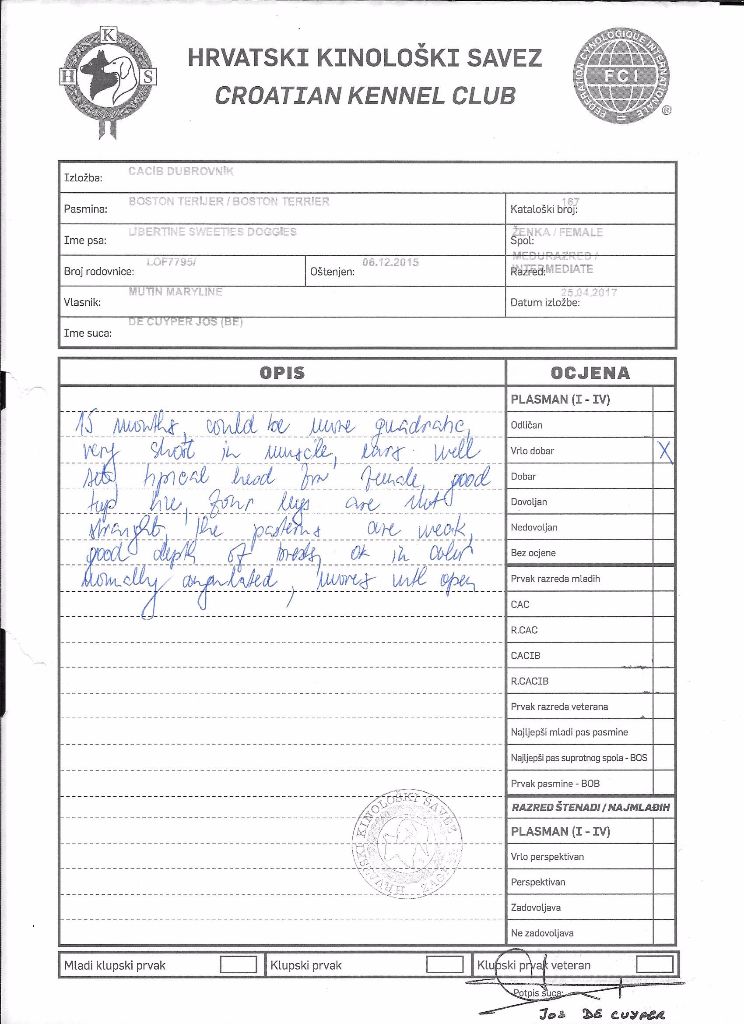 H K S
HRVATSKI KINOLOŠKI SAVEZ
CROATIAN KENNEL CLUB
FEDERATION CYNOLOGIQUE INTERNATIONALE
FCI
®
Izložba: CACIB DUBROVNIK
Pasmina: BOSTON TERIJER / BOSTON TERRIER
Kataloški broj: 167
Ime psa: LIBERTINE SWEETIES DOGGIES
Spol: ŽENKA / FEMALE
Broj rodovnice: LOF7795/
Oštenjen: 06.12.2015
Razred: MEĐURAZRED / INTERMEDIATE
Vlasnik: MUTIN MARYLINE
Datum izložbe: 25.04.2017
Ime suca: DE CUYPER JOS (BE)
OPIS
15 months, could be more quadratic,
very short in muscle, ears well
set, typical head for female, good
top line, four legs are not
straight, the pasterns are weak,
good depth of breast, ok in color
normally angulated, moves with open
OCJENA
PLASMAN (I - IV)
Odličan
Vrlo dobar X
Dobar
Dovoljan
Nedovoljan
Bez ocjene
Prvak razreda mladih
CAC
R.CAC
CACIB
R.CACIB
Prvak razreda veterana
Najljepši mladi pas pasmine
Najljepši pas suprotnog spola - BOS
Prvak pasmine - BOB
RAZRED ŠTENADI / NAJMLAĐIH
PLASMAN (I - IV)
Vrlo perspektivan
Perspektivan
Zadovoljava
Ne zadovoljava
HRVATSKI KINOLOŠKI SAVEZ
ZAGREB
Mladi klupski prvak
Klupski prvak
Klupski prvak veteran
Potpis suca:
JOS DE CUYPER